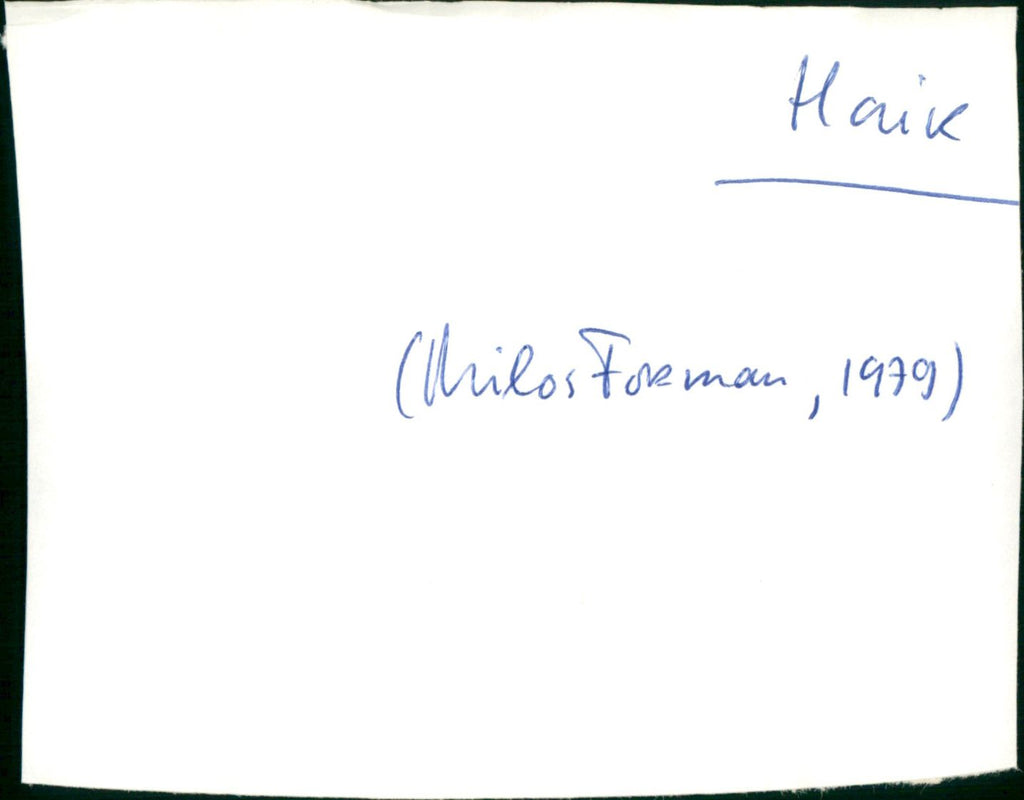 Haik
(Milos Forman, 1979)